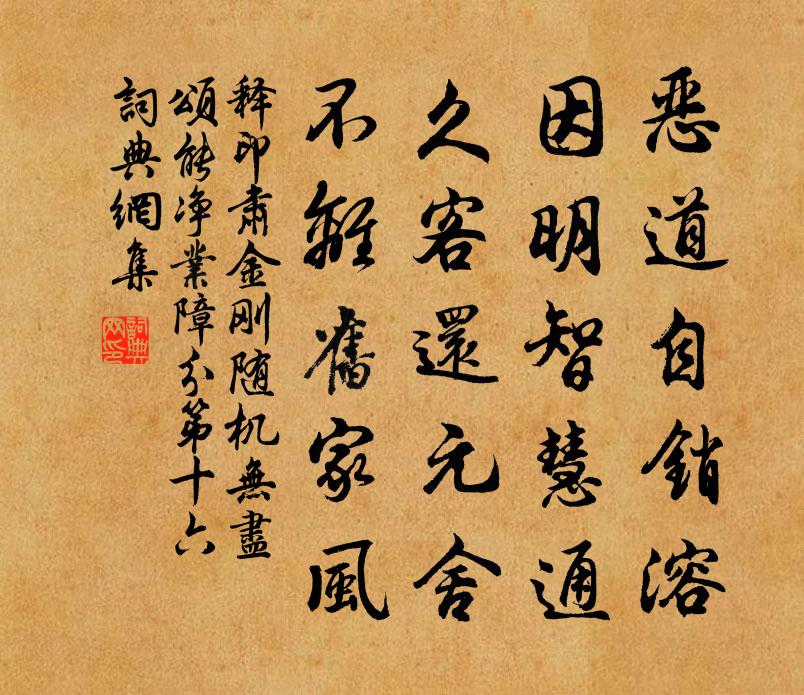 恶道自銷溶
因明智慧通
久客還元舍
不離舊家風
释印肃金刚随机無盡
頌能净業障分第十六
詞典網集
詞典网印